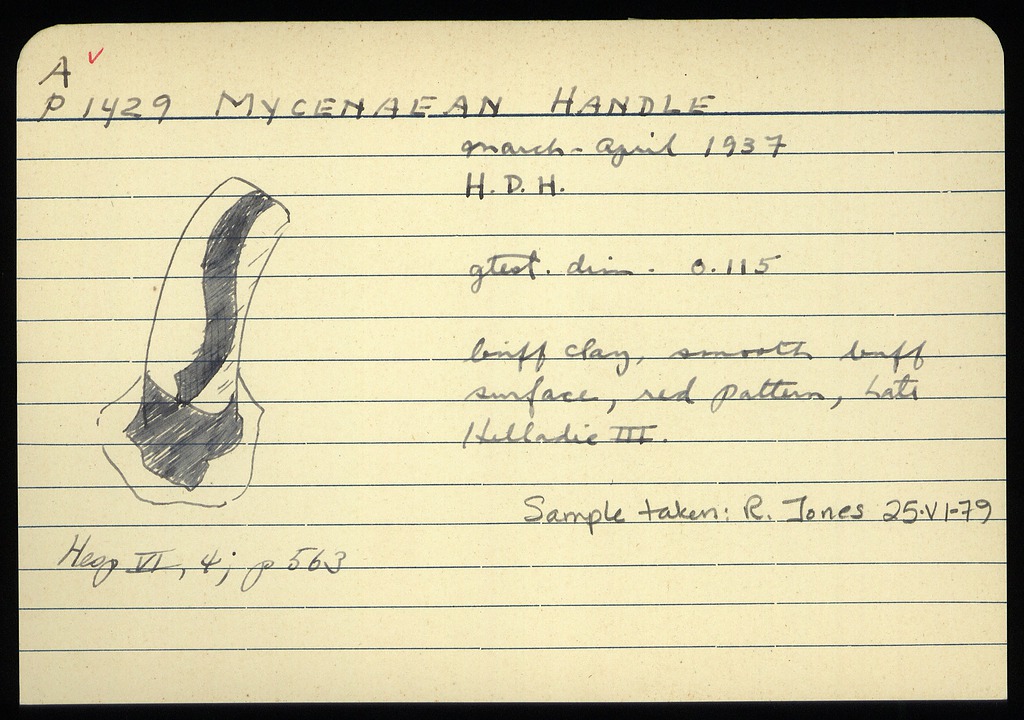 A ✓
P 1429 MYCENAEAN HANDLE
march-April 1937
H.D.H.
gtest. dim. 0.115
buff clay, smooth buff
surface, red pattern, Late
Helladic III.
Sample taken: R. Jones 25·VI-79
Hesp VI, 4; p 563